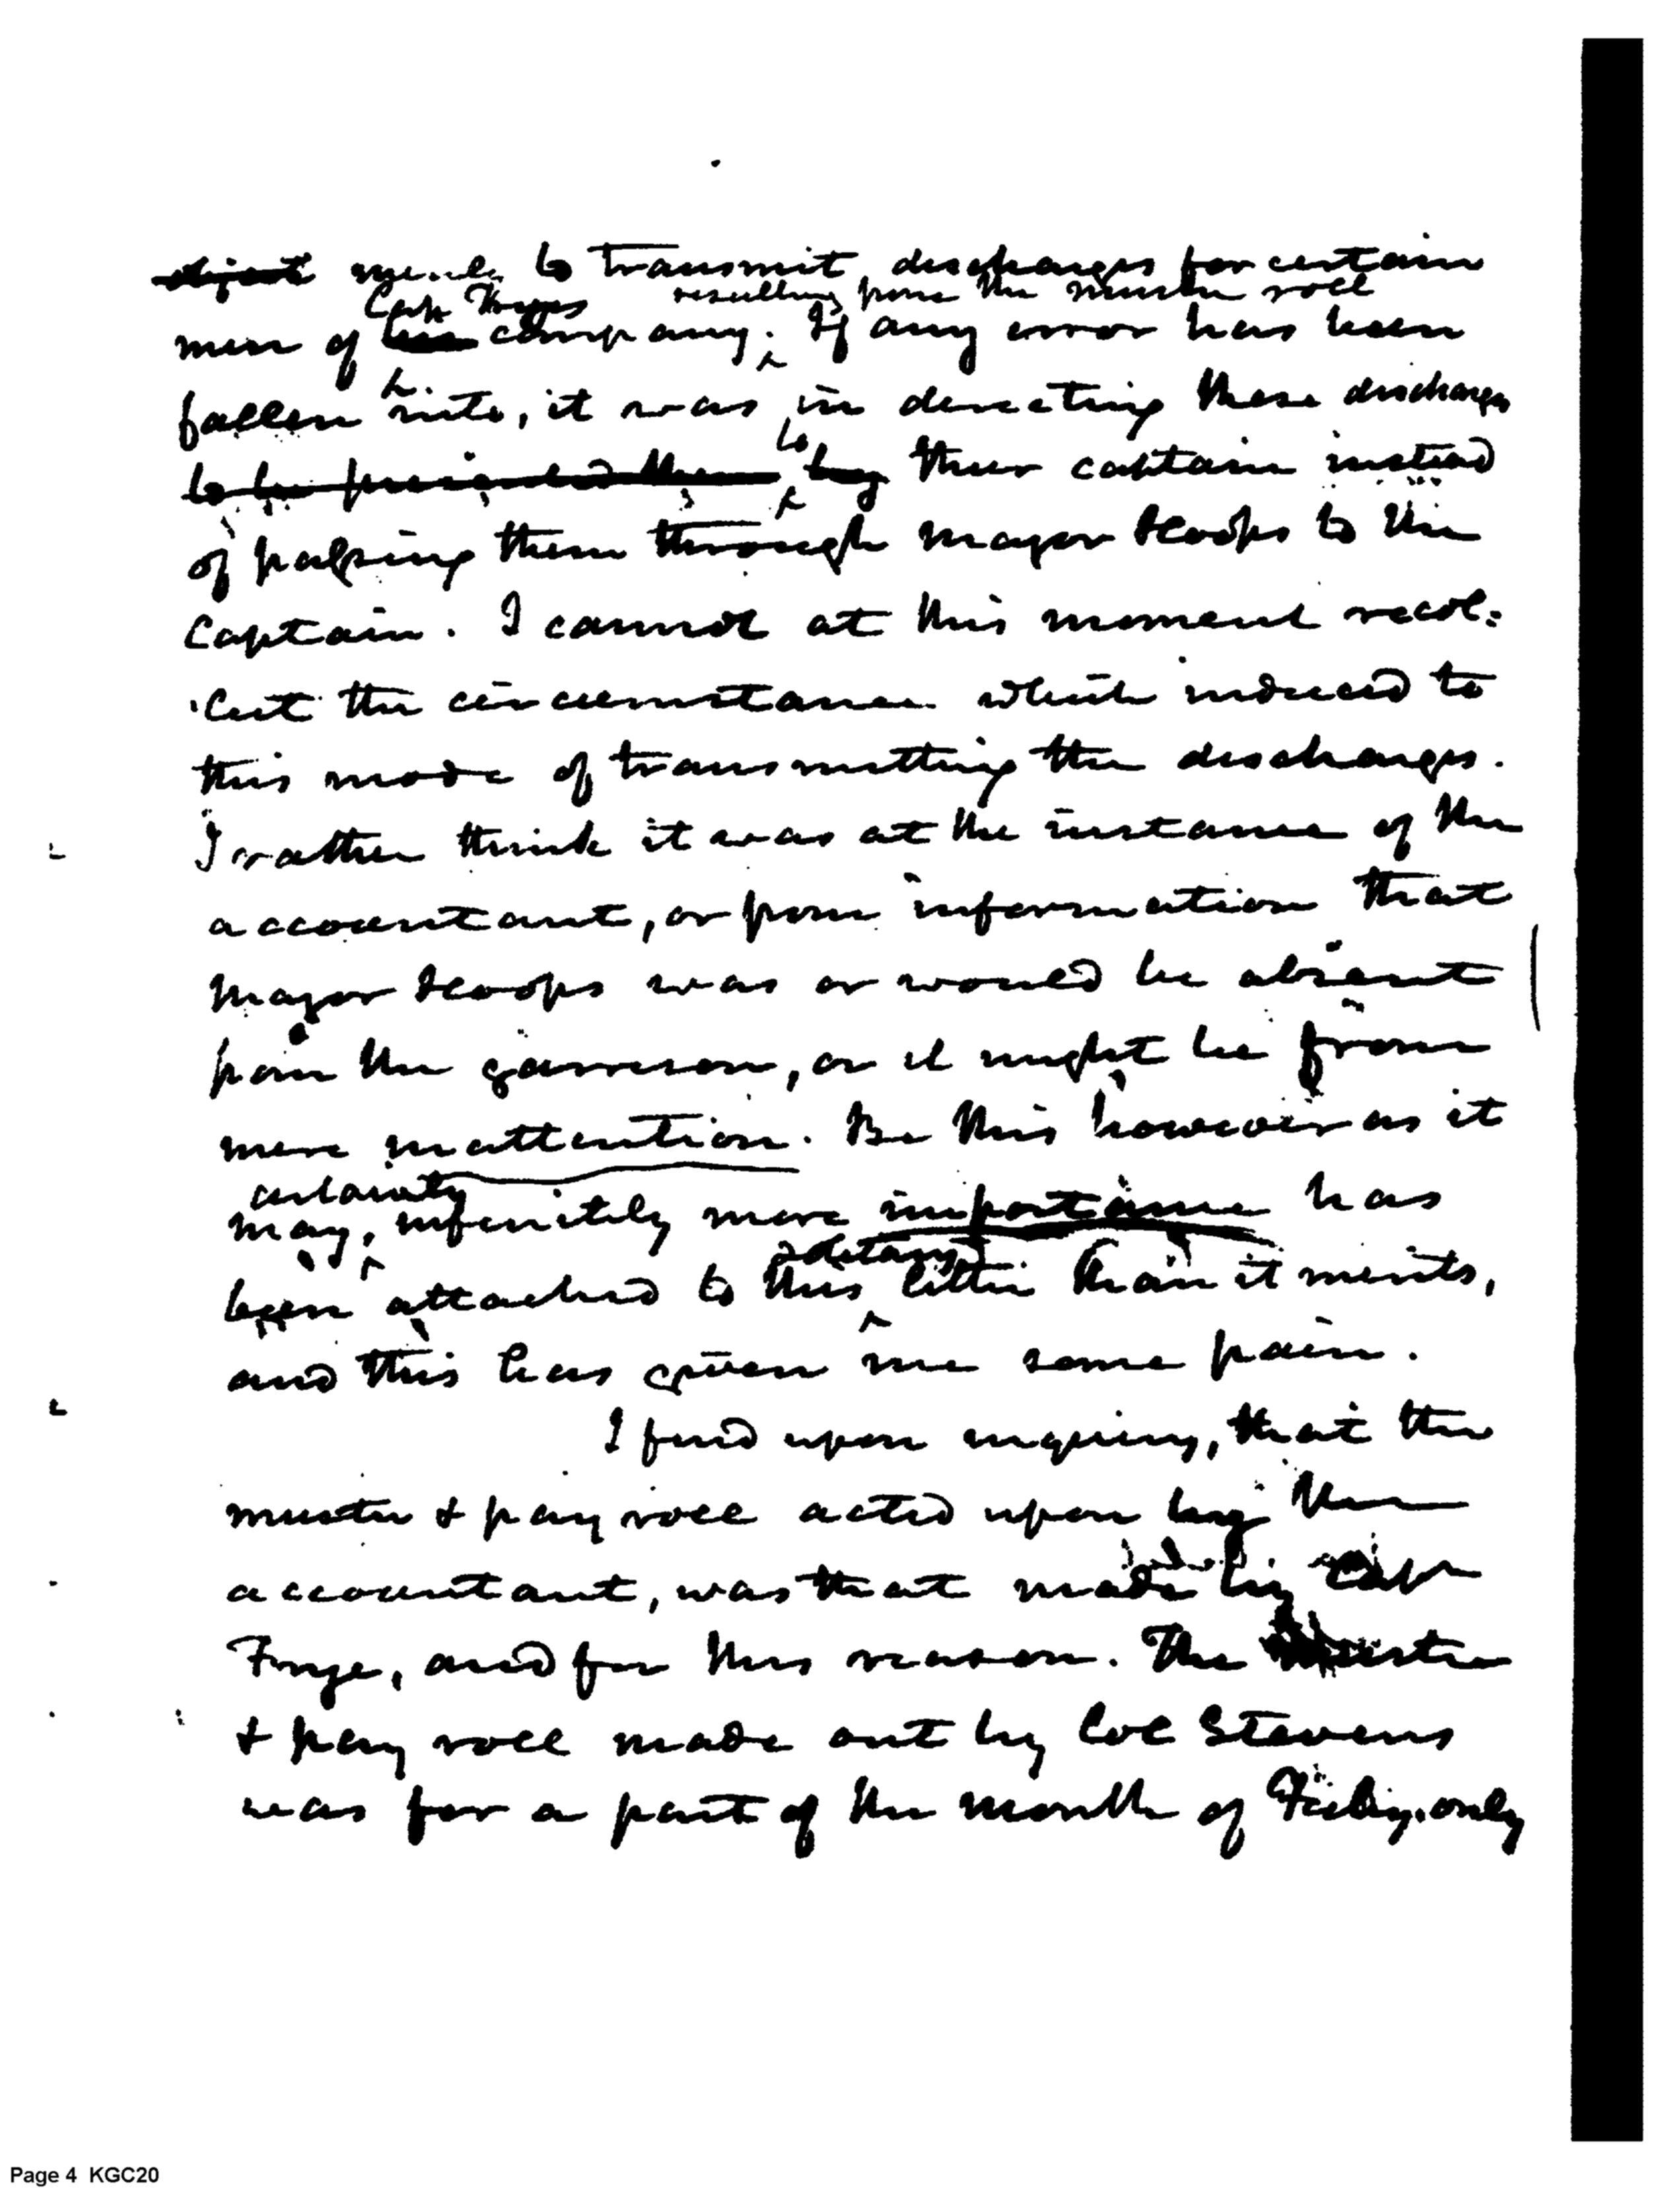 merely to transmit, discharges for certain
resulting from the muster roll
men of company; If any error has been
fallen into, it was in directing these discharges
to
by their captain instead
of passing them through Major Stoops to the
Captain. I cannot at this moment recol:
lect the circumstance which induced to
this mode of transmitting the discharges.
I rather think it was at the instance of the
accountant, or from information that
Major Stoops was or would be absent
from the garrison, or it might be from
mere inattention. Be this however as it
certainly
may, infinitely more importance has
been attached to this letter than it merits,
and this has given me some pain.
I find upon inquiry, that the
muster & pay roll acted upon by the
accountant, was that made by Capt
and for this reason. The muster
& pay roll made out by Col Stevens
was for a part of the month of Feby. only
Page 4 KGC20